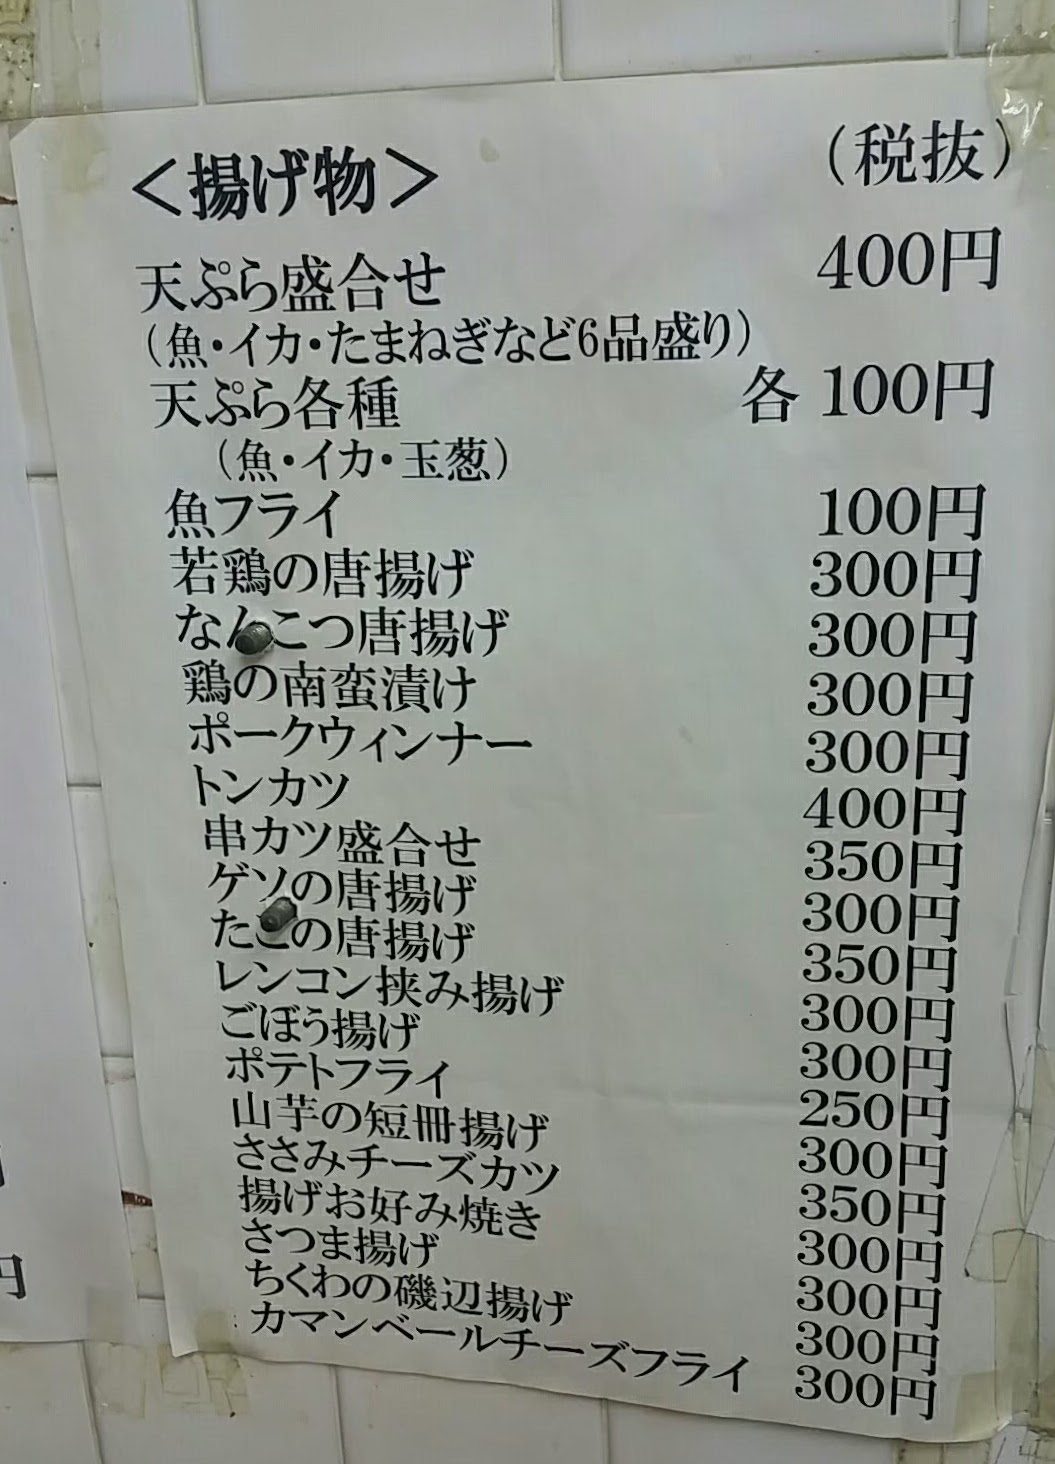 <揚げ物> (税抜)
天ぷら盛合せ 400円
(魚・イカ・たまねぎなど6品盛り)
天ぷら各種 各 100円
(魚・イカ・玉葱)
魚フライ 100円
若鶏の唐揚げ 300円
なんこつ唐揚げ 300円
鶏の南蛮漬け 300円
ポークウィンナー 300円
トンカツ 400円
串カツ盛合せ 350円
ゲソの唐揚げ 300円
たこの唐揚げ 350円
レンコン挟み揚げ 300円
ごぼう揚げ 300円
ポテトフライ 250円
山芋の短冊揚げ 300円
ささみチーズカツ 350円
揚げお好み焼き 300円
さつま揚げ 300円
ちくわの磯辺揚げ 300円
カマンベールチーズフライ 300円
円